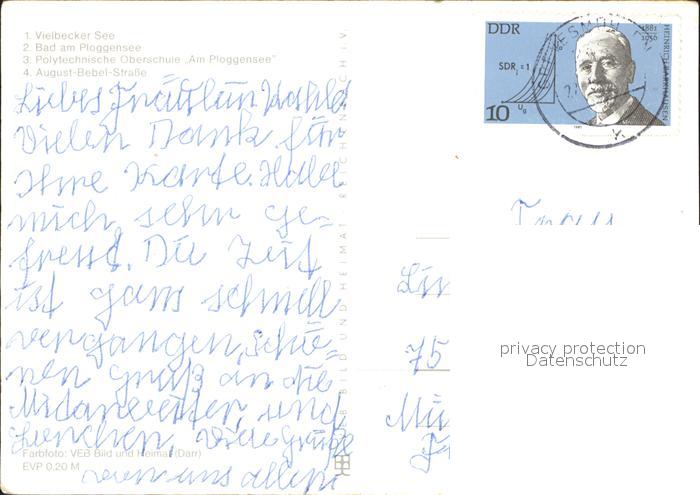 1. Vielbecker See
2. Bad am Ploggensee
3. Polytechnische Oberschule „Am Ploggensee"
4. August-Bebel-Straße
Liebes Fräulein
Vielen Dank für
Ihre Karte. Habe
mich sehr ge-
freut. Die Zeit
ist ganz schnell
vergangen, schö-
nen Gruß an die
Mitarbeiter, und
viele Grüße
von uns allen
Farbfoto: VEB Bild und Heimat (Darr)
EVP 0,20 M
VEB BILD UND HEIMAT REICHENBACH I. V.
DDR
SDRi = 1
Ug
10
1881
1956
HEINRICH BARKHAUSEN
1981
75
privacy protection
Datenschutz